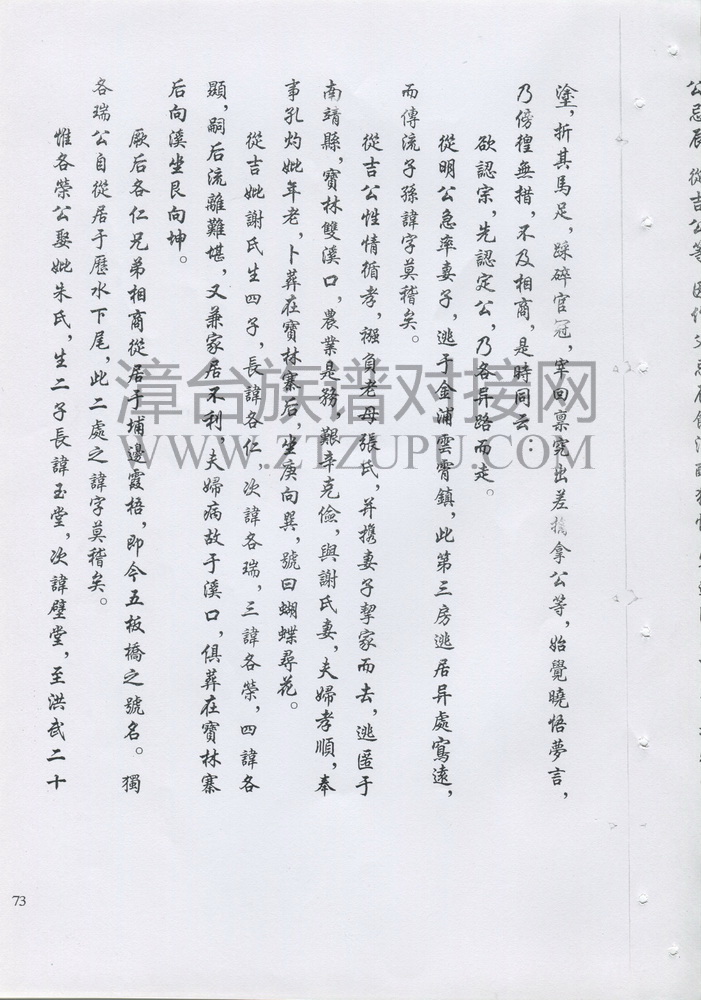 塗，折其馬足，踩碎官冠，宰回禀究出差擒拿公等，始覺曉悟夢言，
乃傍徨無措，不及相商，是時同云：
欲認宗，先認定公，乃各异路而走。
從明公急率妻子，逃于金浦雲霄鎮，此第三房逃居异處寫遠，
而傳流子孫諱字莫稽矣。
從吉公性情循孝，襁負老母張氏，并携妻子挈家而去，逃匿于
南靖縣，寶林雙溪口，農業是務，艱辛克儉，與謝氏妻，夫婦孝順，奉
事孔灼妣年老，卜葬在寶林寨后，坐庚向巽，號曰蝴蝶尋花。
從吉妣謝氏生四子，長諱各仁，次諱各瑞，三諱各榮，四諱各
顯，嗣后流離難堪，又兼家居不利，夫婦病故于溪口，俱葬在寶林寨
后向溪坐艮向坤。
厥后各仁兄弟相商從居于埔邊霞梧，即今五板橋之號名。獨
各瑞公自從居于歷水下尾，此二處之諱字莫稽矣。
惟各榮公娶妣朱氏，生二子長諱玉堂，次諱壁堂，至洪武二十
73
漳台族谱对接网
WWW.ZTZUPU.COM